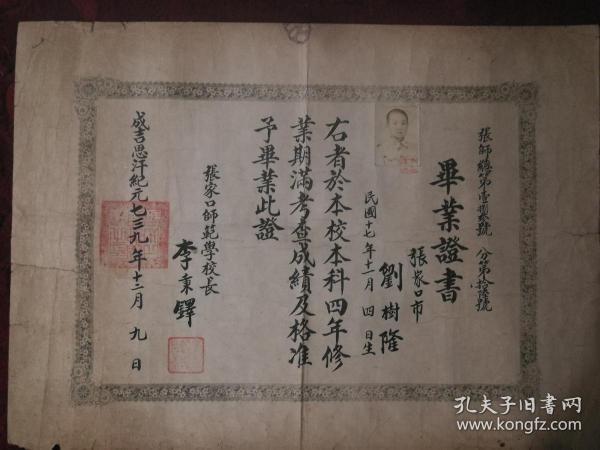 張師總第壹號 分第拾號
畢業證書
張家口市
劉樹隆
民國十七年十一月四日生
右者於本校本科四年修
業期滿考查成績及格准
予畢業此證
張家口師範學校長
李秉鐸
成吉思汗紀元七三九年十二月九日
孔夫子旧书网
www.kongfz.com